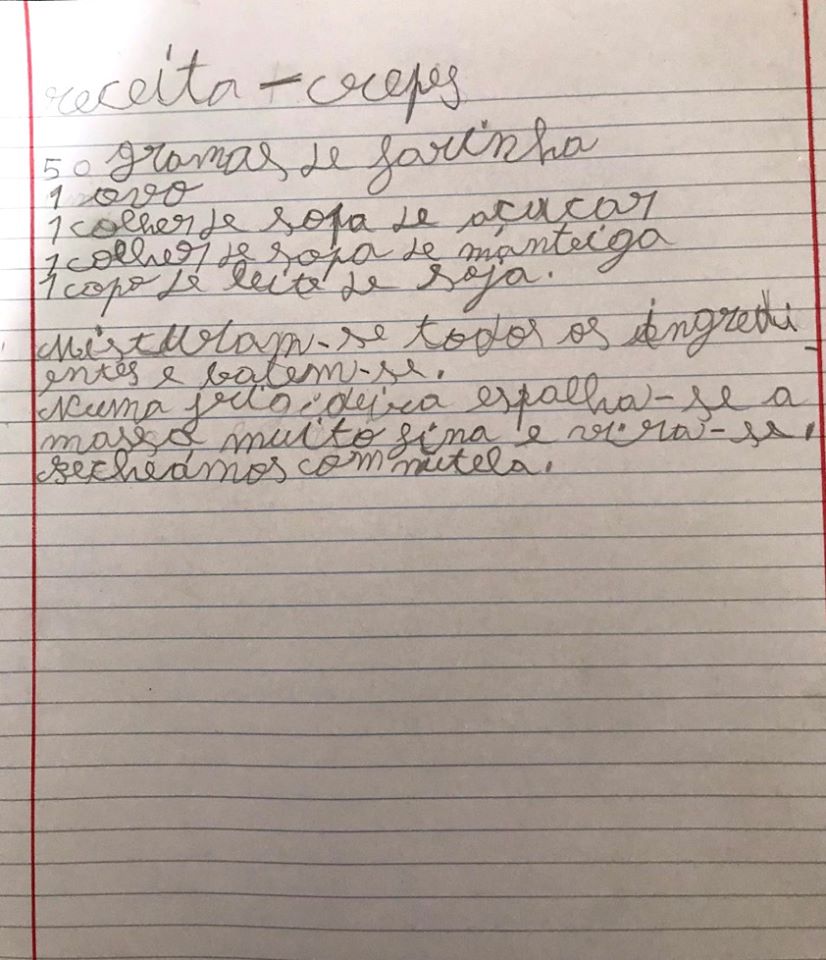 receita - crepes
50 gramas de farinha
1 ovo
1 colher de sopa de açucar
1 colher de sopa de manteiga
1 copo de leite de soja.
Misturam-se todos os ingredi
entes e batem-se.
Numa frigideira espalha-se a
massa muito fina e vira-se.
Recheamos com nutela.